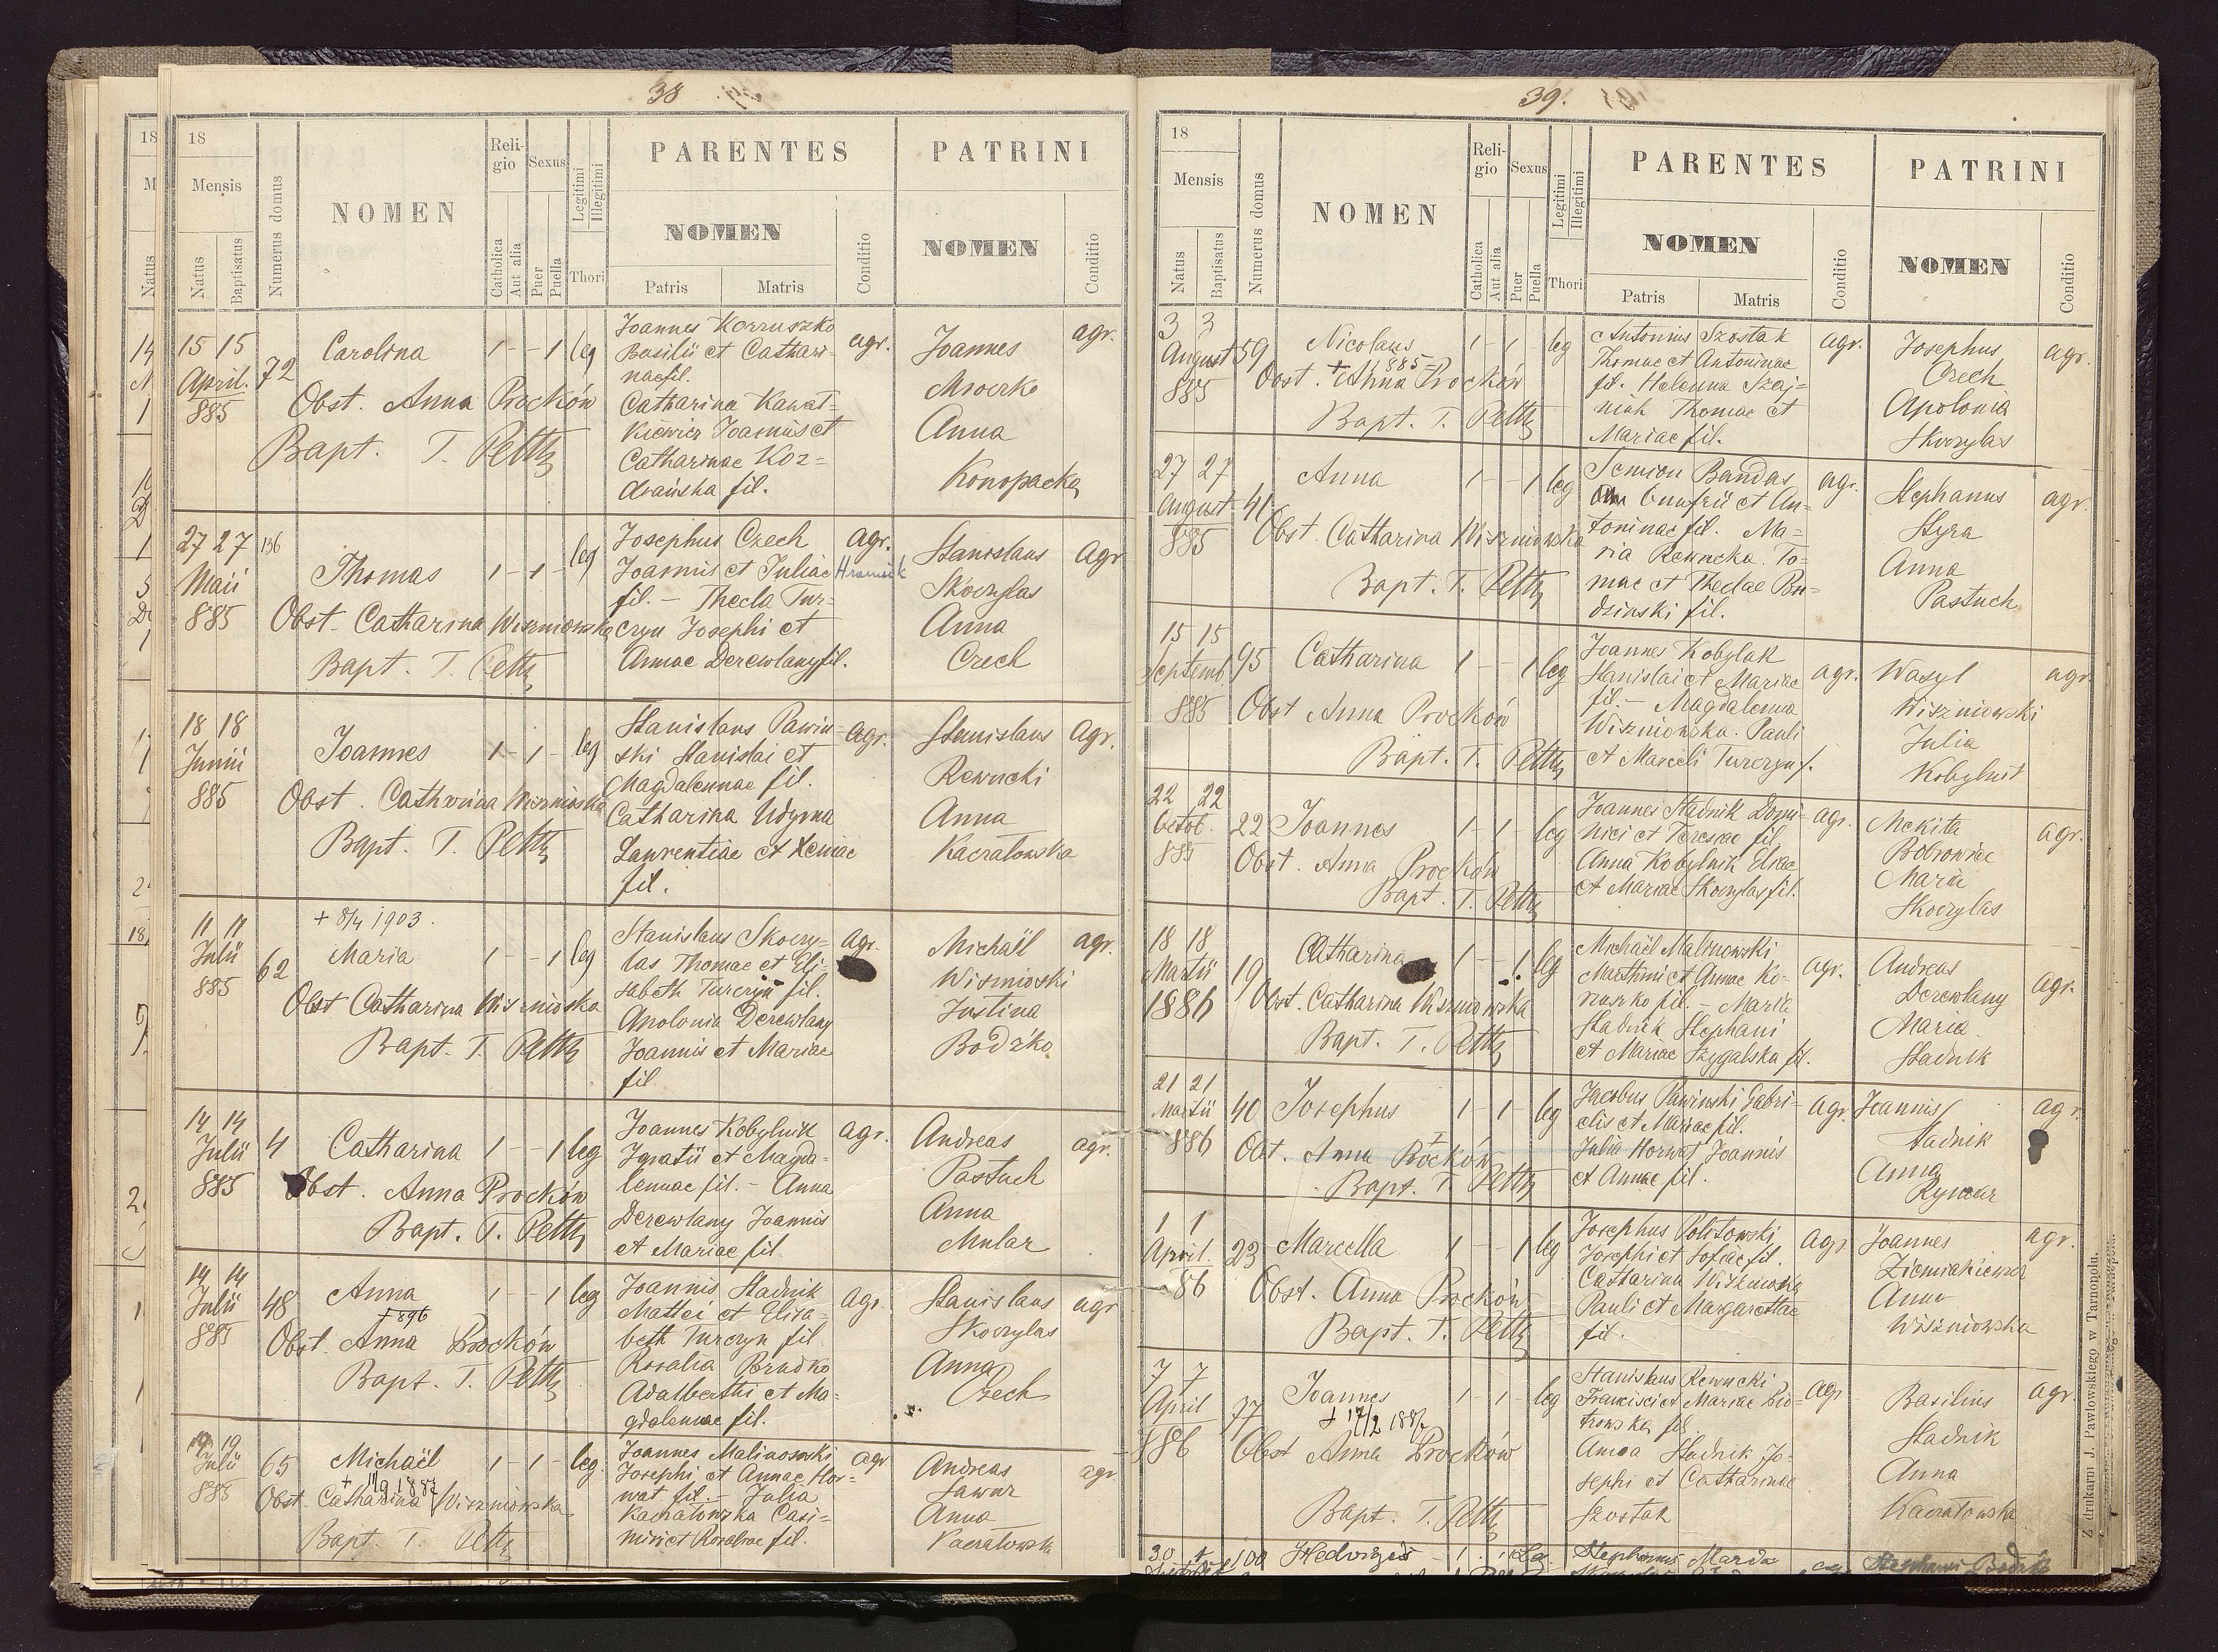 38
18
Mensis
Natus
Baptisatus
Numerus domus
NOMEN
Religio
Catholica
Aut alia
Sexus
Puer
Puella
Legitimi
Illegitimi
Thori
PARENTES
NOMEN
Patris
Matris
Conditio
PATRINI
NOMEN
Conditio
15 15
April.
885
72
Carolina
1 - - 1 leg
Obst. Anna Prockón
Bapt. T. Petty
Joannes Korruszko
Basilii et Cathari-
nae fil.
Catharina Kawat=
kiewicz Joannis et
Catharinae Koz=
drańska fil.
agr.
Joannes
Mroczko
Anna
Konopacka
agr.
27 27
Maii
885
136
Thomas
1 - 1 - leg
Obst. Catharina Wiszniowska
Bapt. T. Petty
Josephus Czech
Joannis et Juliae Hramiak
fil. - Thecla Tur-
czyn Josephi et
Annae Derewlany fil.
agr.
Stanislaus
Skoczylas
Anna
Czech
agr
18 18
Junii
885
Joannes
1 - 1 - leg
Obst. Catharina Wiszniowska
Bapt. T. Petty
Stanislaus Pawin-
ski Stanislai et
Magdalennae fil.
Catharina Udyma
Laurentiae et Xeniae
fil.
agr.
Stanislaus
Rewucki
Anna
Kaczatowska
Agr.
11 11
Julii
885
62
+ 8/4 1903.
Maria
1 - - 1 leg
Obst Catharina Wiszniowska
Bapt. T. Petty
Stanislaus Skoczy-
las Thomae et Eli-
sabeth Turczyn fil.
Apolonia Derewlany
Joannis et Mariae
fil
agr.
Michaël
Wiszniowski
Justina
Bodźko
agr.
14 14
Julii
885
4
Catharina
1 - - 1 leg
Obst. Anna Prockón
Bapt. T. Petty
Joannes Kobylnik
Ignatii et Magda-
lennae fil. - Anna
Derewlany Joannis
et Mariae fil
agr.
Andreas
Pastuch
Anna
Mular
agr.
14 14
Julii
885
48
Anna
+ 896
1 - - 1 leg
Obst. Anna Prockón
Bapt. T. Petty
Joannis Stadnik
Mattei et Elisa-
beth Turczyn fil
Rosalia Brudko
Adalberthi et Ma-
gdalennae fil.
agr.
Stanislaus
Skoczylas
Anna
Czech
agr
19 19
Julii
885
65
Michaël
1 - 1 - leg.
Obst. Catharina Wiszniowska
Bapt. T. Petty
Joannes Malinowski
Josephi et Annae Hor-
wat fil. - Julia
Kaczatowska Casi-
miri et Rosaliae fil.
agr
Andreas
Jawor
Anna
Kaczatowsk
agr.
39.
18
Mensis
Natus
Baptisatus
Numerus domus
NOMEN
Religio
Catholica
Aut alia
Sexus
Puer
Puella
Legitimi
Illegitimi
Thori
PARENTES
NOMEN
Patris
Matris
Conditio
PATRINI
NOMEN
Conditio
3 3
August
885
59
Nicolaus
+ 885
1 - 1 - leg
Obst. Anna Prockón
Bapt. T. Petty
Antonius Szostak
Thomae et Antoninae
fil. Helenna Szaj=
niak Thomae et
Mariae fil.
agr.
Josephus
Czech
Apolonia
Skoczylas
agr.
27 27
August
885
41
Anna
1 - - 1 leg
Obst. Catharina Wiszniowska
Bapt. T. Petty
Semion Bandas
Onufrii et An-
toninae fil. Ma-
ria Rewucka To-
mae et Theclae Bu-
dzinski fil.
agr.
Stephanus
Styra
Anna
Pastuch
agr.
15 15
Septemb.
885
95
Catharina
1 - - 1 leg
Obst Anna Prockón
Bapt. T. Petty
Joannes Kobylak
Stanislai et Mariae
fil. - Magdalenna
Wiszniowska. Pauli
et Marceli Turczyn f.
agr.
Wasyl
Wiszniowski
Julia
Kobylnik
agr.
22 22
Octob.
885
22
Joannes
1 - 1 - leg
Obst. Anna Prockón
Bapt. T. Petty
Joannes Stadnik Domi-
nici et Teresiae fil
Anna Kobylnik Eliae
et Mariae Skoczylas fil.
agr.
Mekita
Bobrowicz
Maria
Skoczylas
agr.
18 18
Martii
1886
19
Catharina
1 - - 1 leg
Obst. Catharina Wiszniowska
Bapt. T. Petty
Michaël Malinowski
Marthini et Annae Ko-
ruszko fil. - Maria
Stadnik Stephani
et Mariae Szygalska fil.
agr.
Andreas
Derewlany
Maria
Stadnik
agr.
21 21
Martii
886
40
Josephus
1 - 1 - leg
Obt. Anna Prockón
Bapt. T. Petty
Jacobus Pawinski Gabri-
elis et Mariae fil.
Julia Horwat Joannis
et Annae fil.
Agr.
Joannis
Stadnik
Anna
Rymar
agr.
1 1
April.
86
23
Marcella
1 - - 1 leg
Obst. Anna Prockón
Bapt. T. Petty
Josephus Politowski
Josephi et Sofiae fil.
Catharina Wiszniowska
Pauli et Margarettae
fil.
Agr
Joannes
Ziemiakiewicz
Anna
Wiszniowska
agr.
7 7
April
886
77
Joannes
+ 17/2 1887
1 - 1 - leg
Obst Anna Prockón
Bapt. T. Petty
Stanislaus Rewucki
Francisci et Mariae Pio-
trowska fil.
Anna Stadnik Jo-
sephi et Catharinae
Szostak
Agr
Basilius
Stadnik
Anna
Kaczatowska
agr.
30
100
Hedvigis
Stephanus Marda
Stephanus Bodźk
Z drukarni J. Pawłowskiego w Tarnopolu.